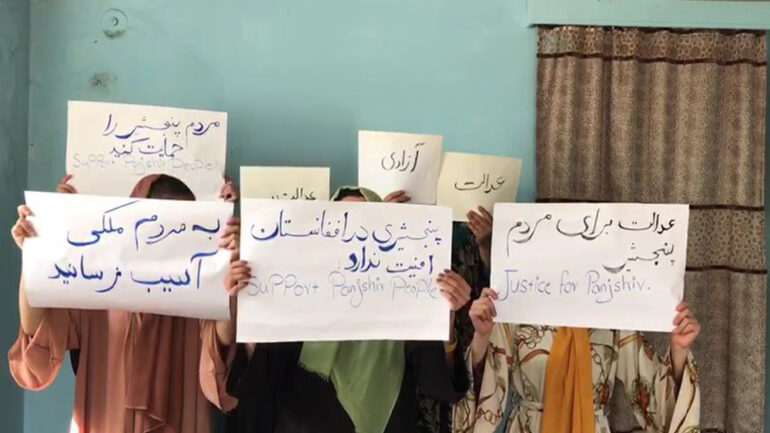 مردم پنجشیر را
حمایت کنید
Support Panjshir People
آزادی
عدالت
عدالت
به مردم ملکی
آسیب نرسانید
پنجشیری در افغانستان
امنیت ندارد
Support Panjshir People
عدالت برای مردم
پنجشیر
Justice for Panjshir.